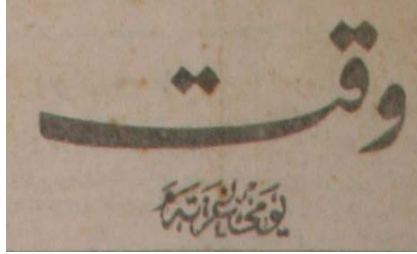 وقت
يومى غزته